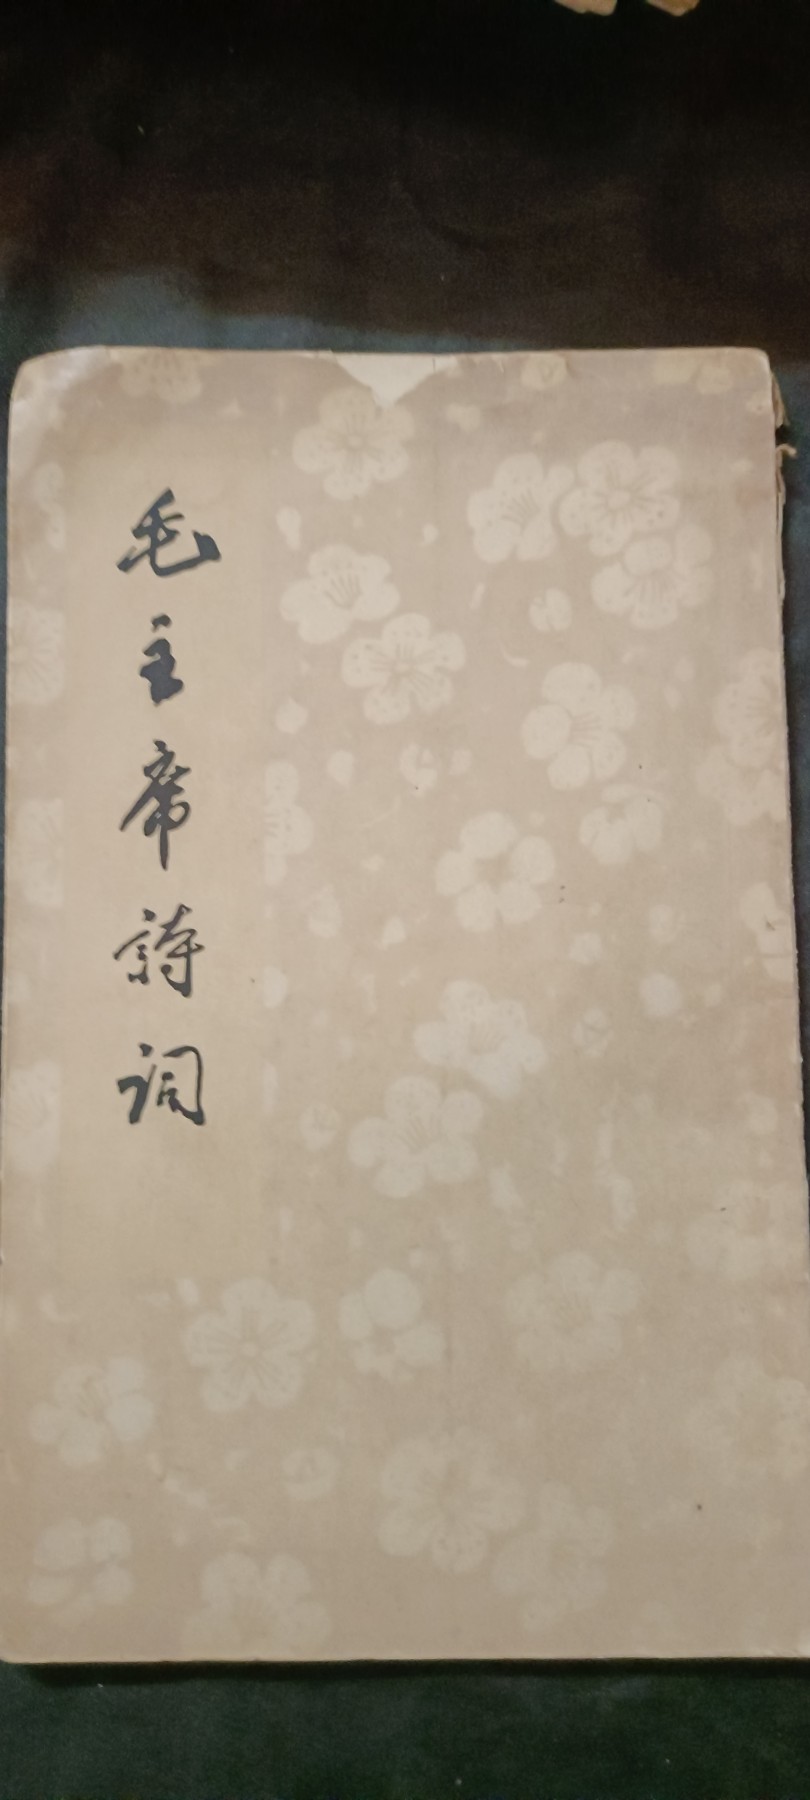 毛主席詩词